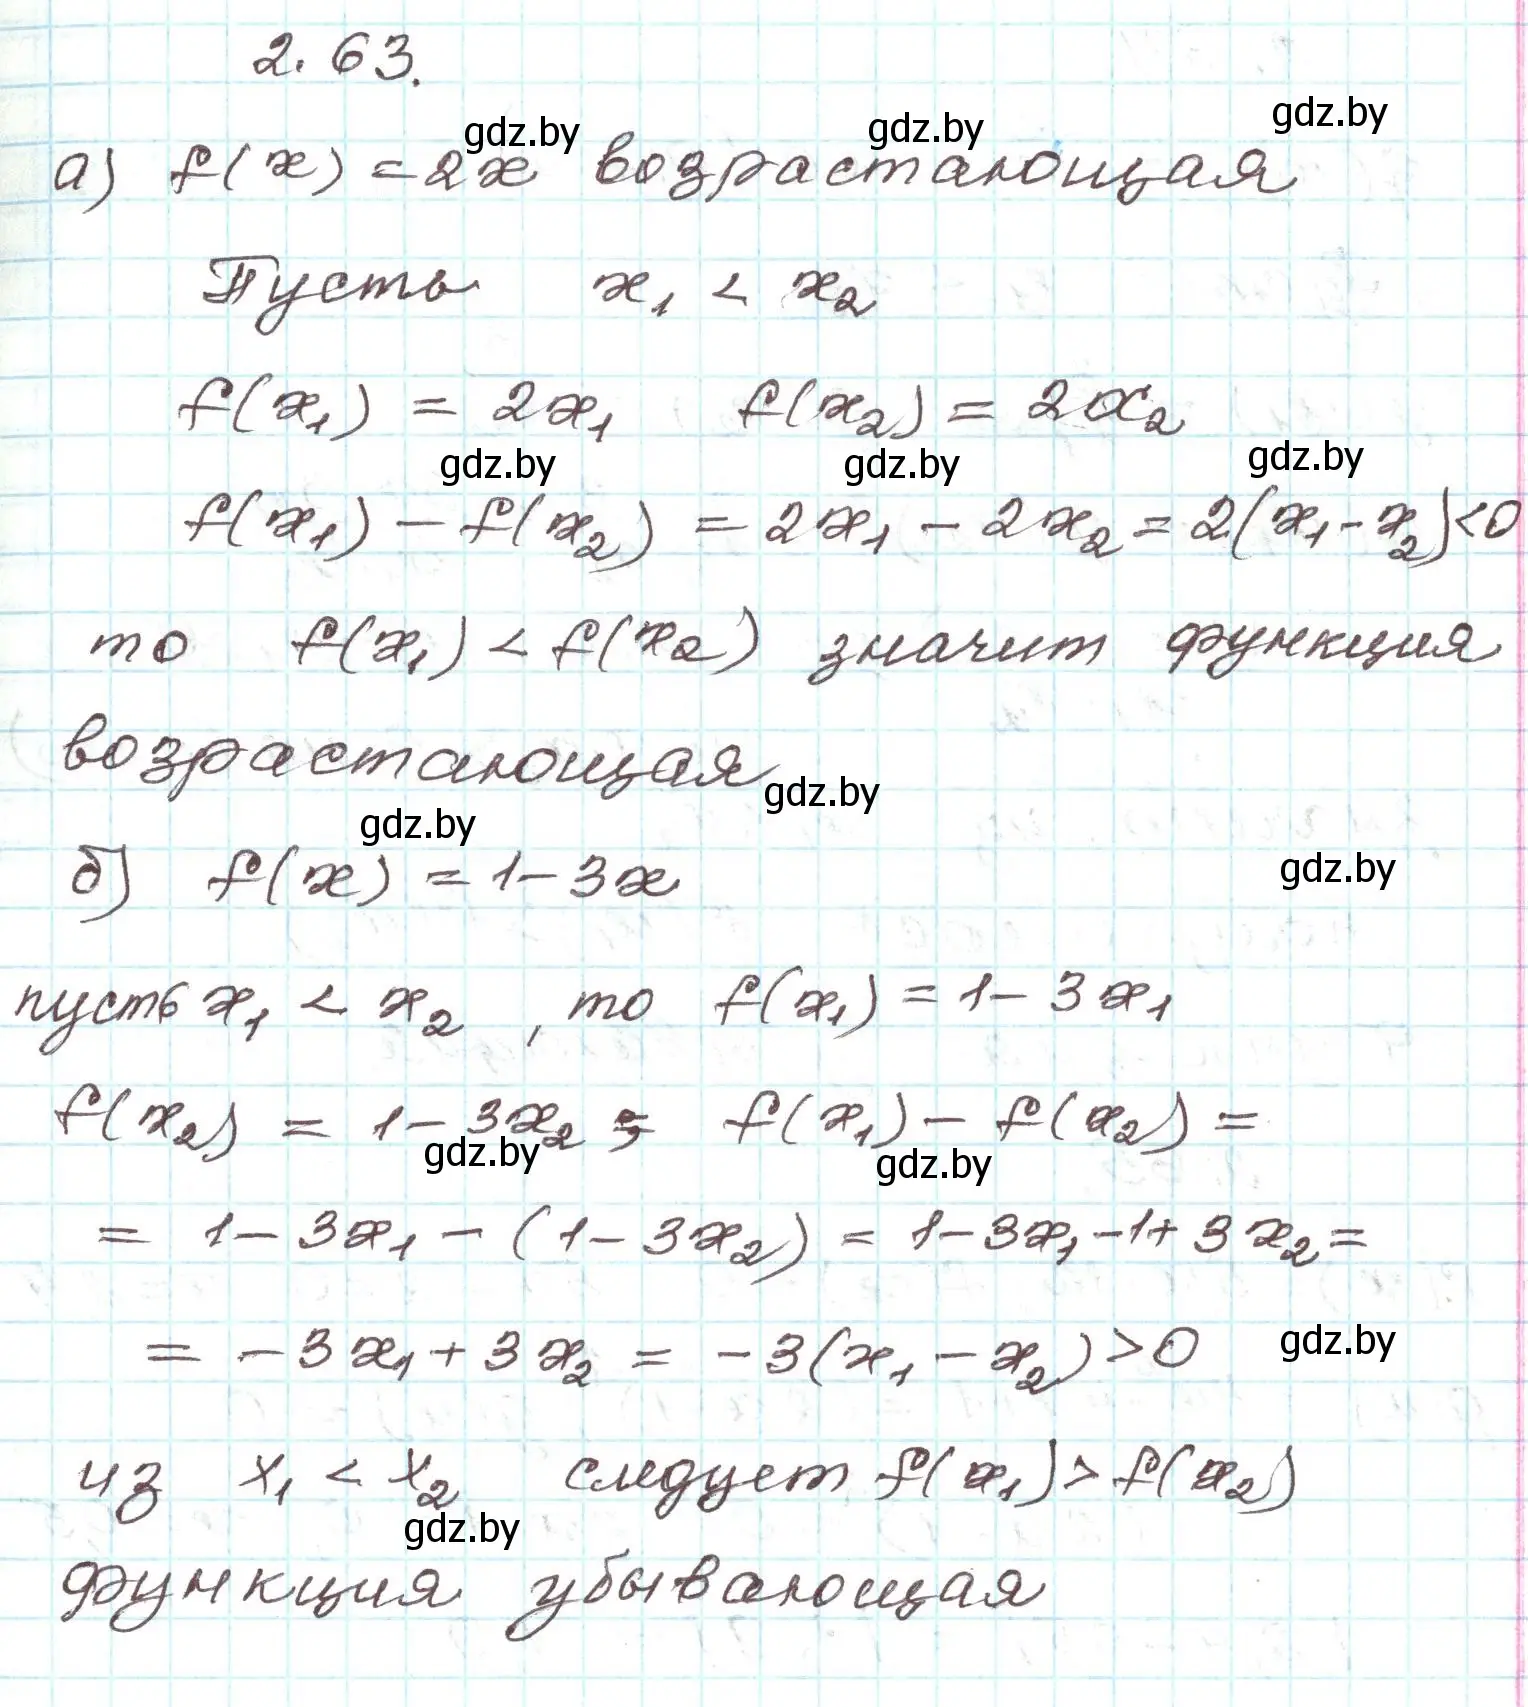 2.63.
gdz.by gdz.by gdz.by
а) f(x) = 2x возрастающая
Пусть x₁ < x₂
f(x₁) = 2x₁ f(x₂) = 2x₂
gdz.by gdz.by gdz.by
f(x₁) - f(x₂) = 2x₁ - 2x₂ = 2(x₁ - x₂) < 0
то f(x₁) < f(x₂) значит функция
возрастающая
gdz.by
gdz.by
б) f(x) = 1 - 3x
gdz.by
пусть x₁ < x₂, то f(x₁) = 1 - 3x₁
f(x₂) = 1 - 3x₂; f(x₁) - f(x₂) =
gdz.by gdz.by
= 1 - 3x₁ - (1 - 3x₂) = 1 - 3x₁ - 1 + 3x₂ =
= -3x₁ + 3x₂ = -3(x₁ - x₂) > 0
gdz.by
из x₁ < x₂ следует f(x₁) > f(x₂)
gdz.by
функция убывающая